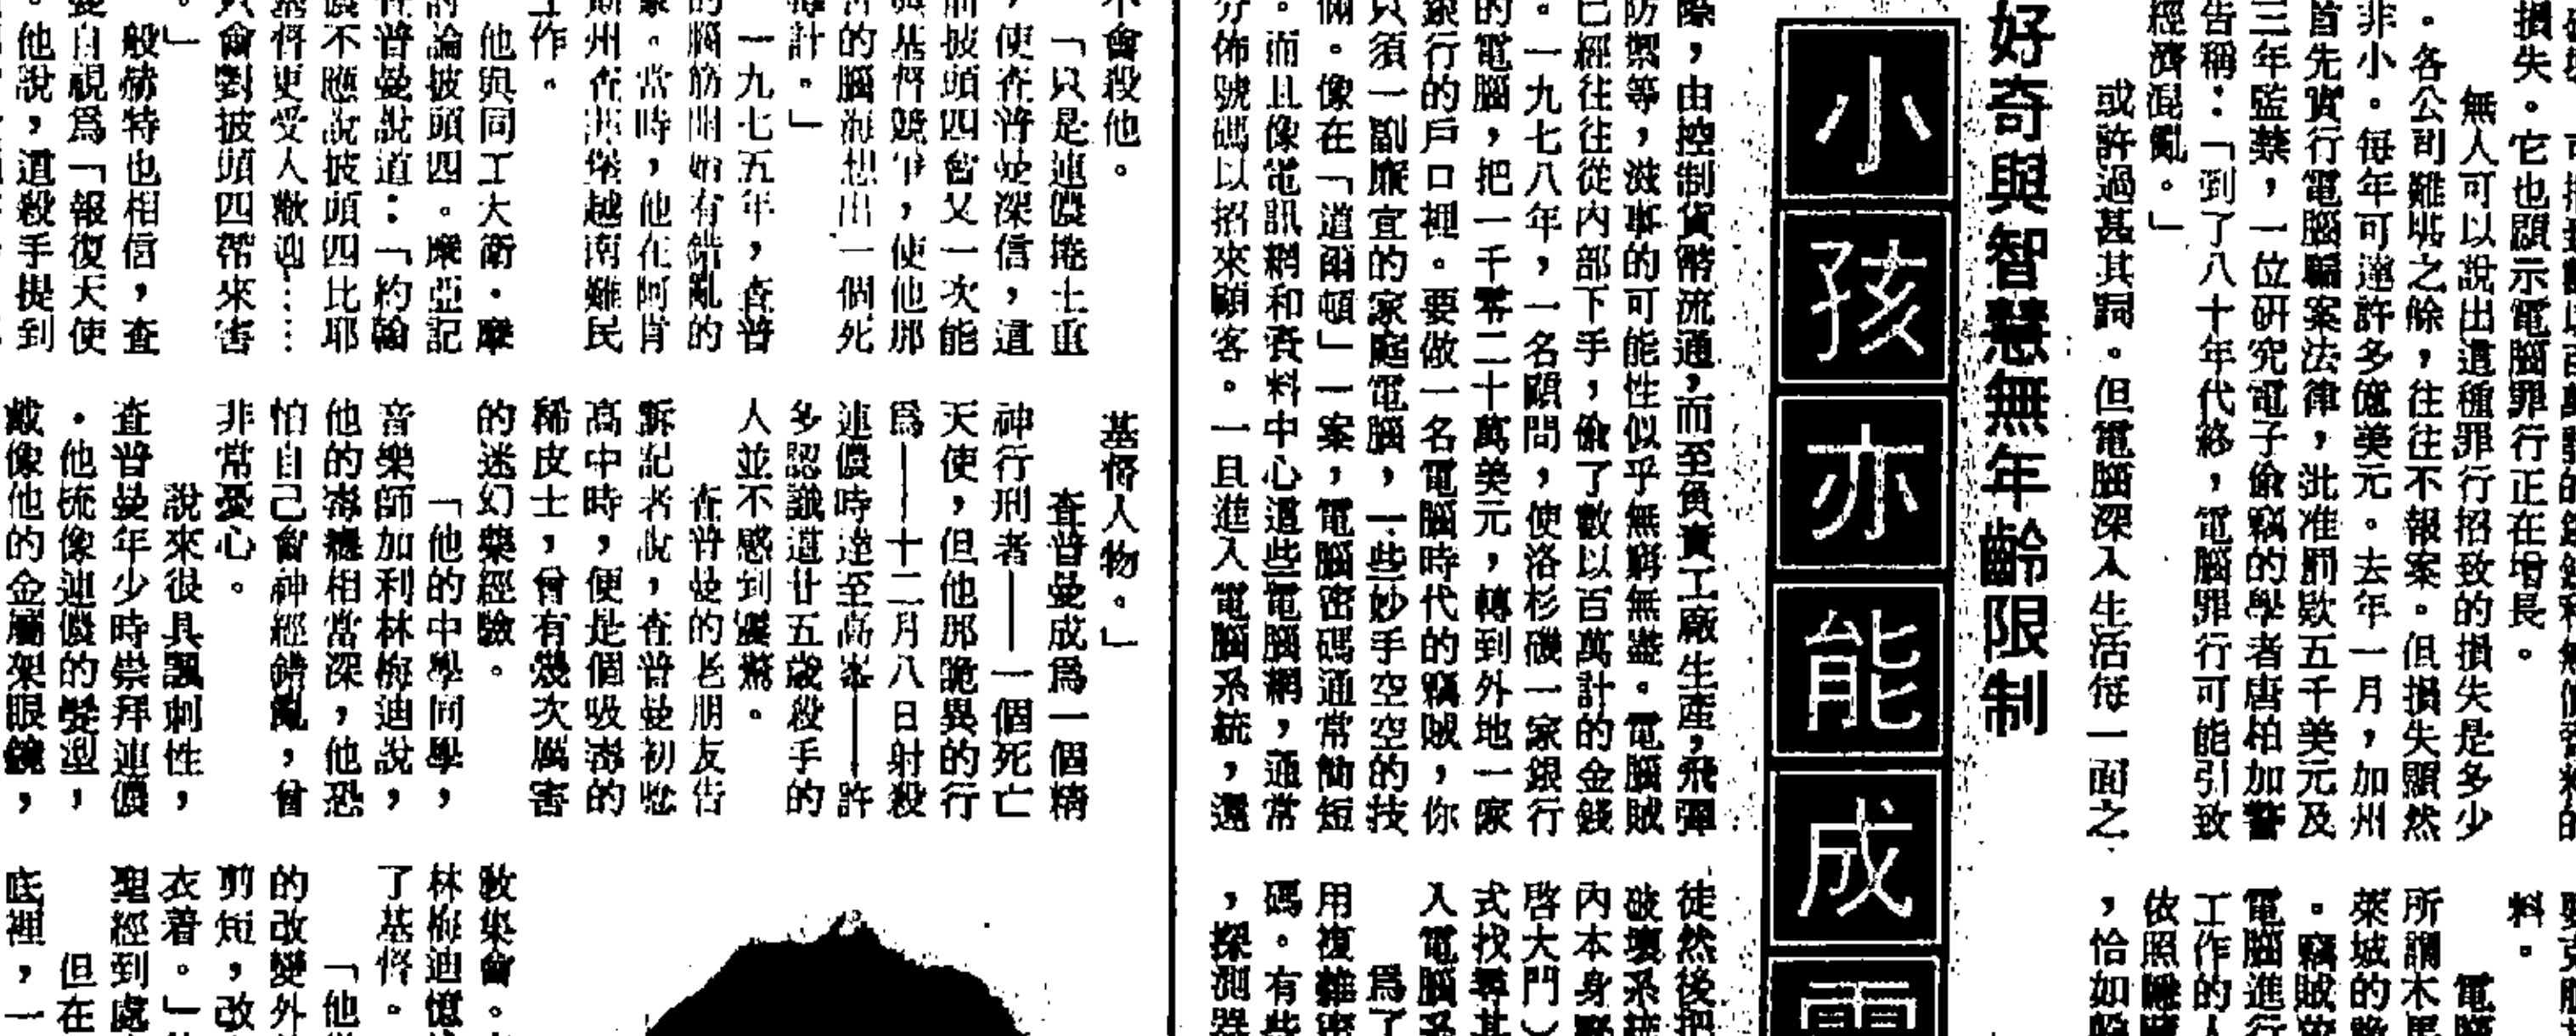 損失。它也顯示電腦罪行正在增長。
無人可以說出這種罪行招致的損失是多少
。各公司難堪之餘，往往不報案。但損失顯然
非小。每年可達許多億美元。去年一月，加州
首先實行電腦騙案法律，批准罰款五千美元及
三年監禁，一位研究電子偷竊的學者唐柏加警
告稱：「到了八十年代終，電腦罪行可能引致
經濟混亂。」
或許過甚其詞。但電腦深入生活每一面之
好奇與智慧無年齡限制
小孩亦能成電
際，由控制貨幣流通，而至負責工廠生產，飛彈
防禦等，滋事的可能性似乎無窮無盡。電腦賊
已經往往從內部下手，偷了數以百萬計的金錢
。一九七八年，一名顧問，使洛杉磯一家銀行
的電腦，把一千零二十萬美元，轉到外地一家
銀行的戶口裡。要做一名電腦時代的竊賊，你
只須一副廉宜的家庭電腦，一些妙手空空的技
倆。像在「道爾頓」一案，電腦密碼通常簡短
。而且像電訊網和資料中心這些電腦網，通常
分佈號碼以招來顧客。一旦進入電腦系統，還
料。
電腦
所謂木馬
萊坡的
。竊賊
電腦進行
工作的人
依照
，恰如
徒然後把
破壞系統
內本身
啓大門）
式找尋其
入電腦系
爲了
用複雜密
碼。有些
，探測器
不會殺他。
「只是連儂捲土重
，使查普曼深信，這
前披頭四會又一次能
與基督競爭，使他那
的腦海想出一個死
計。」
一九七五年，查普
的腦筋開始有錯亂的
象。當時，他在阿肯
斯州查菲堡越南難民
工作。
他與同工大衛．摩
討論披頭四。摩亞記
查普曼說道：「約翰
儂不應說披頭四比耶
基督更受人歡迎……
只會對披頭四帶來害
。」
般赫特也相信，查
曼自視爲「報復天使
。他說，這殺手提到
基督人物。」
查普曼成爲一個精
神行刑者——一個死亡
天使，但他那詭異的行
爲——十二月八日射殺
連儂時達至高峯——許
多認識這廿五歲殺手的
人並不感到震驚。
查普曼的老朋友告
訴記者說，查普曼初唸
高中時，便是個吸毒的
稀皮士，曾有幾次厲害
的迷幻藥經驗。
「他的中學同學，
音樂師加利林梅迪說，
他的毒癮相當深，他恐
怕自己會神經錯亂，曾
非常憂心。
說來很具諷刺性，
查普曼年少時崇拜連儂
。他梳像連儂的髮型，
戴像他的金屬架眼鏡，
教集會。
林梅迪憶
了基督。
「他從
的改變外
剪短，改
衣着。」
聖經到處
但在
底裡，一